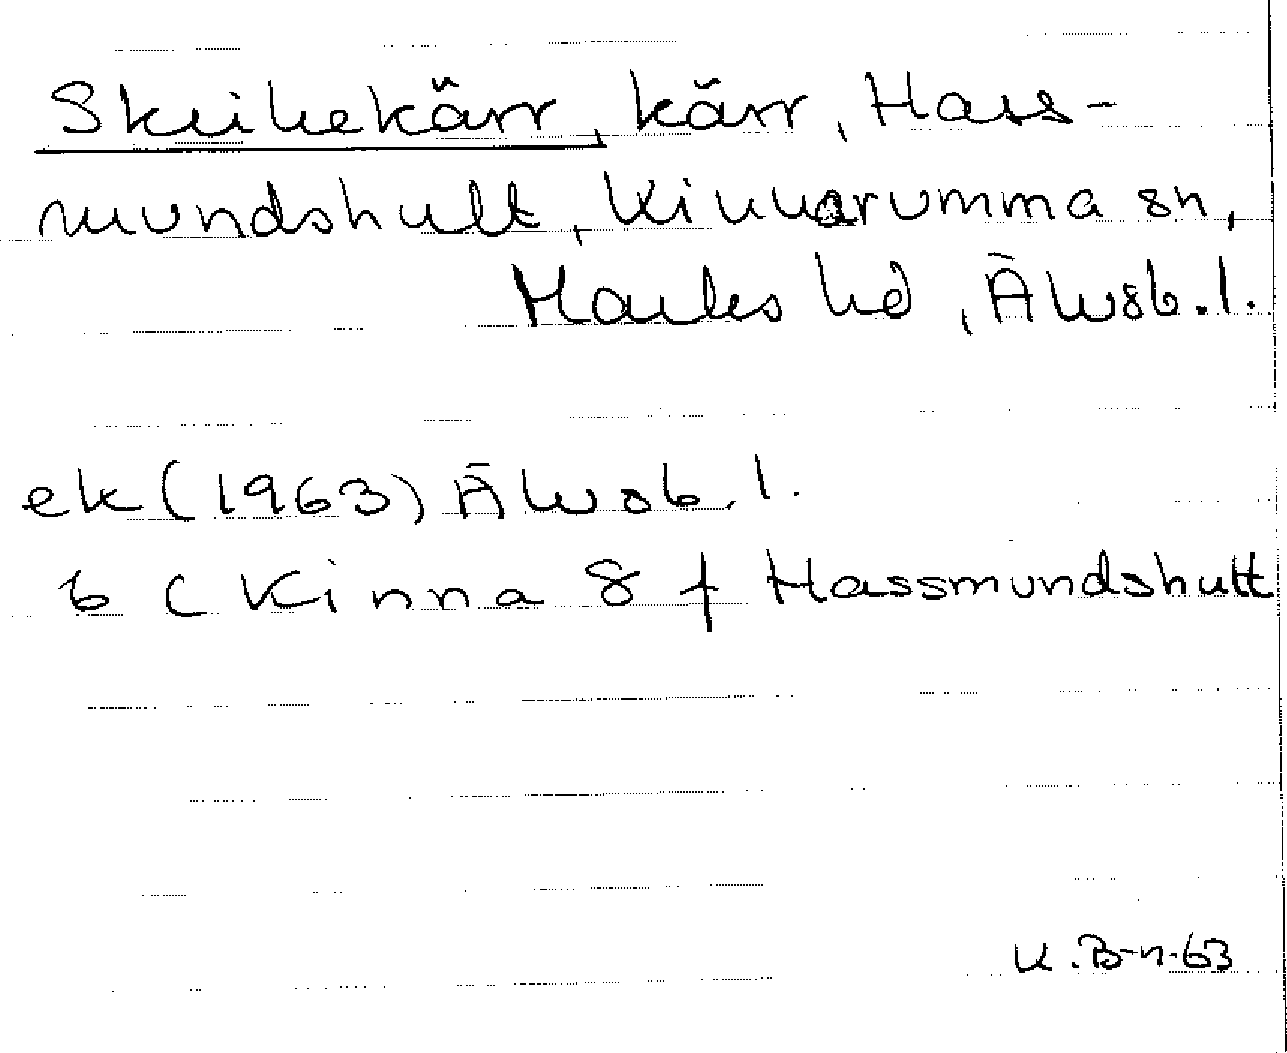 Skrikekärr, kärr, Hass-
mundshult, Kinnarumma sn,
Marks hd, Älvsb.l.
ek (1963) Älvsb.l.
6 C Kinna 8 f Hassmundshult
U.B-n.63